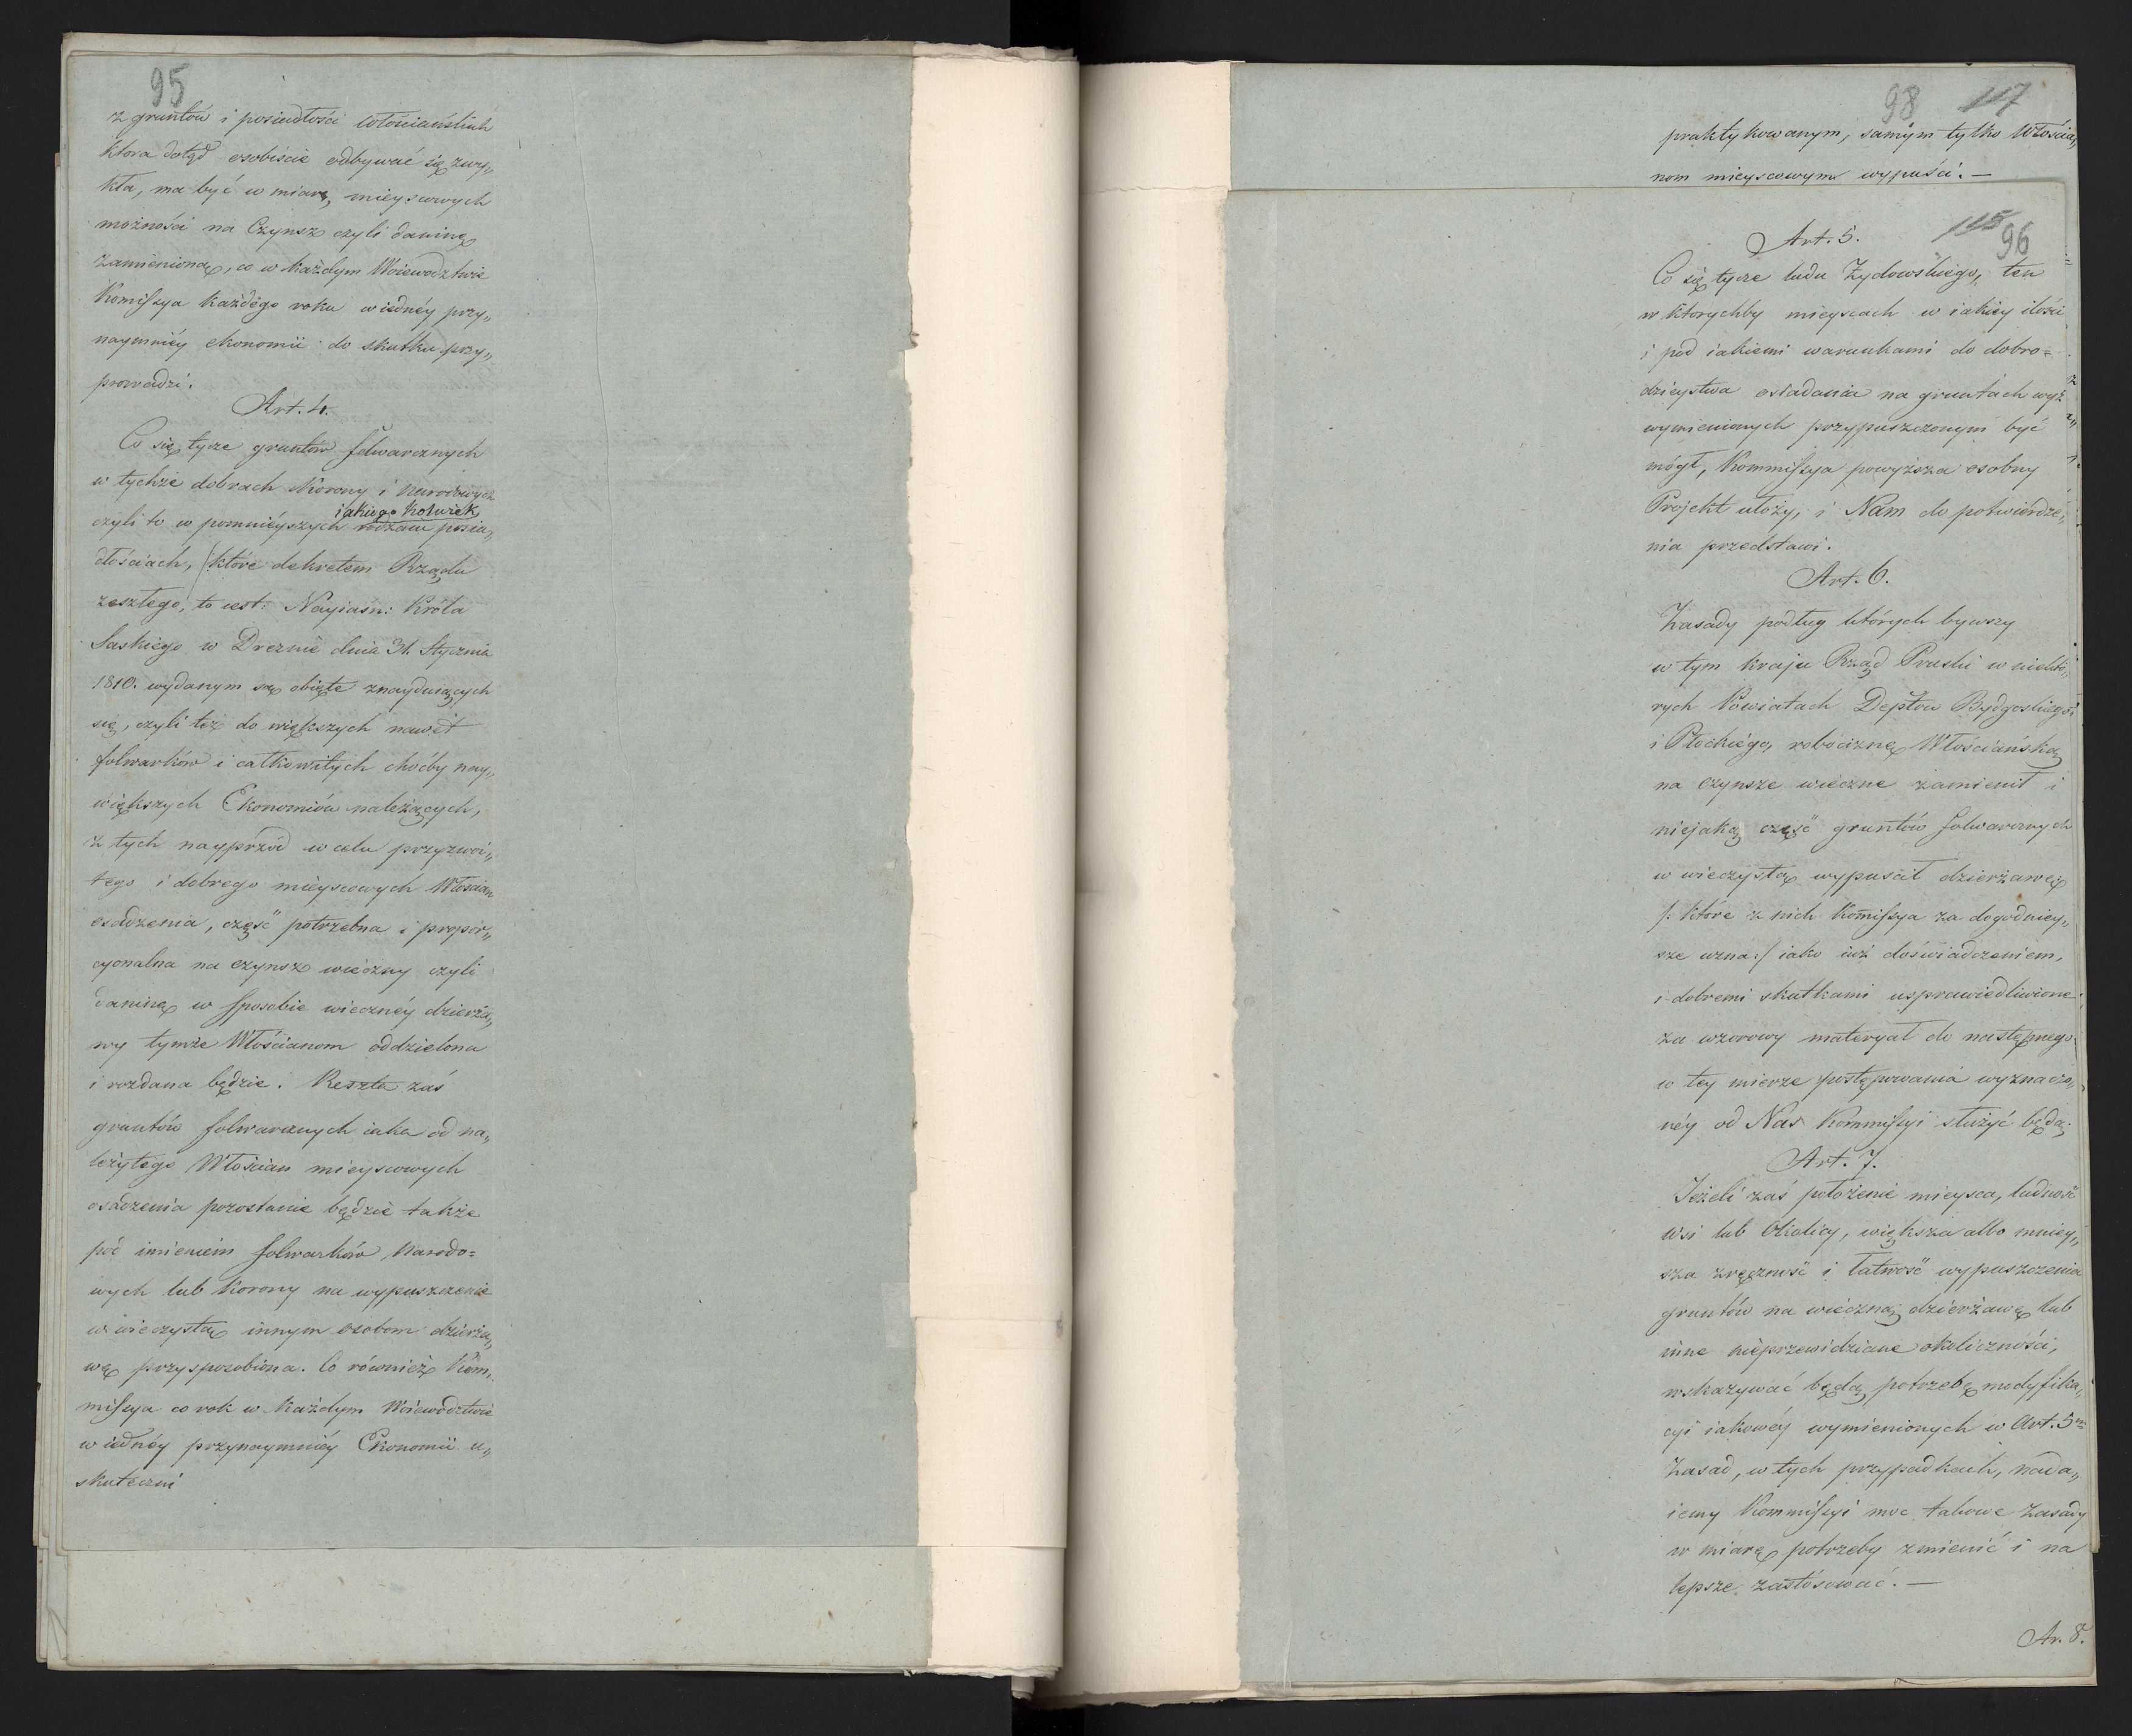 95
z gruntów i posiadłości Włościańskich
ktora dotąd osobiscie odbywać się zwy„
kła, ma być w miarę mieyscowych
możności na Czynsz czyli daninę
zamienioną, co w każdym Woiewodztwie
Komissya każdego roku w iednéy przy„
naymniéy ekonomii do skutku przy„
prowadzi.
Art. 4.
Co się tycze gruntów folwarcznych
w tychże dobrach Korony i narodowych
iakiego kolwiek
czyli to w pomnieyszych rodzaiu posia„
dłościach, które dekretem Rządu
zeszłego, to iest: Nayiasn: Króla
Saskiego w Dreznie dnia 31. Stycznia
1810. wydanym są obięte znayduiących
się, czyli też do większych nawet
folwarków i całkowitych choćby nay„
większych Ekonomiów należących,
z tych nayprzód w celu przyzwoi„
tego i dobrego mieyscowych Włościan
osadzenia, część potrzebna i propor„
cyonalna na czynsz wieczny czyli
daninę w sposobie wiecznéy dzierża„
wy tymże Włościanom oddzielona
i rozdana będzie. Reszta zaś
gruntów folwarcznych iaka od na„
leżytego Włościan mieyscowych
osadzenia pozostanie będzie także
pod imieniem folwarków Narodo=
wych lub Korony na wypuszczenie
w wieczystą innym osobom dzierża„
wę przysposobiona. Co również Kom„
missya co rok w każdym Woiewództwie
w iednéy przynaymniéy Ekonomii u„
skuteczni
98 117
praktykowanym, samym tylko Włościa„
nom mieyscowym wypuści. —
115 96
Art. 5.
Co się tycze ludu Żydowskiego, ten
w ktorychby mieyscach w iakiey ilości
i pod iakiemi warunkami do dobro=
dzieystwa osiadania na gruntach wyż
wymienionych przypuszczonym być
mógł, Kommissya powyższa osobny
Projekt ułoży, i Nam do potwierdze„
nia przedstawi.
Art. 6.
Zasady podług których bywszy
w tym kraju Rząd Pruski w niektó„
rych Powiatach Deptów Bydgoskiego
i Płockiego, robociznę Włościańską
na czynsze wieczne zamienił i
niejaką część gruntów folwarcznych
w wieczystą wypuścił dzierżawę
/: które z nich Komissya za dogodniey„
sze uzna:/ iako iuż doświadczeniem,
i dobremi skutkami usprawiedliwione
za wzorowy materyał do następnego
w tey mierze postępowania wyznaczo„
néy od Nas Kommissyi służyć będą.
Art. 7.
Jeżeli zaś położenie mieysca, ludność
wsi lub Okolicy, większa albo mniey„
sza zręczność i łatwość wypuszczenia
gruntów na wieczną dzierżawę lub
inne nieprzewidziane okoliczności,
wskazywać będą potrzebę modyfika„
cyi iakowéy wymienionych w Art. 5m
Zasad, w tych przypadkach, nada„
iemy Kommissyi moc takowe zasady
w miarę potrzeby zmienić i na
lepsze zastósować. —
Ar. 8.